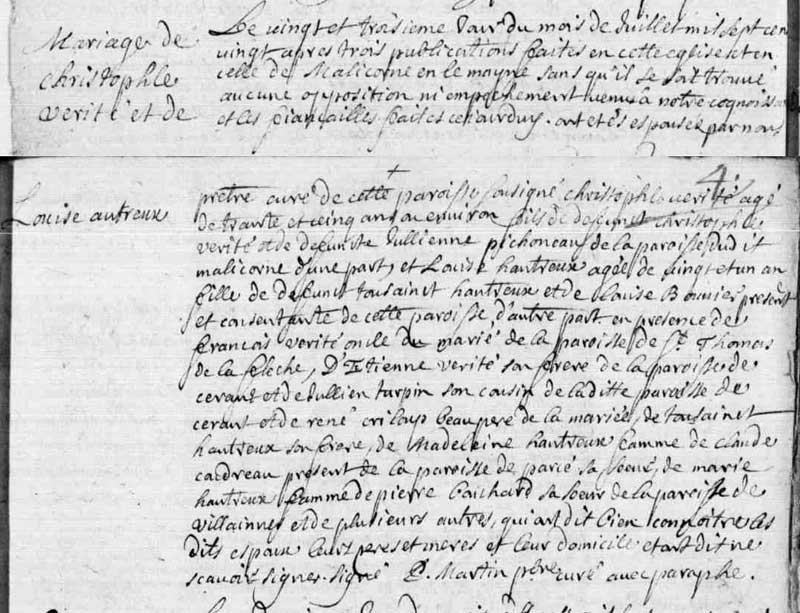 Mariage de
christophle
verité et de
Le vingt et troisieme Jour du mois de Juillet mil sept cen
vingt apres trois publications faites en cette eglise et en
celle de Malicorne en le mayne sans qu'il se soit trouvé
aucune opposition ni empechement venus a notre cognoissa
et les fiançailles faites ont etés espousez par nous
Louise autreux
prêtre curé de cette paroisse soussigné christophle verité agé
de trante et ceinq ans ou environ fils de defunct christophle
verité et de defuncte Jullienne pichoneau de la paroisse dudit
malicorne d'une part, et Louise hautreux agée de vingt et un an
fille de defunct tousainct hautreux et de Louise Bounier presente
et consentante de cette paroisse d'autre part en presence de
francois verité oncle du marié de la paroisse de St. Thomas
de la feleche, D'Etienne verité son frere de la paroisse de
cerant et de Jullien turpin son cousin de laditte paroisse de
cerant et de rené criloup beaupere de la mariée, de tousainct
hautreux son frere, de Madeleine hautreux famme de claude
caudreau present de la paroisse de parcé sa soeur, de marie
hautreux famme de pierre sa soeur de la paroisse de
villainnes et de plusieurs autres, qui ont dit bien connoitre les
dits espoux leurs peres et meres et leur domicile et ont dit ne
scavoir signer. signé P. Martin prêtre curé avec paraphe.